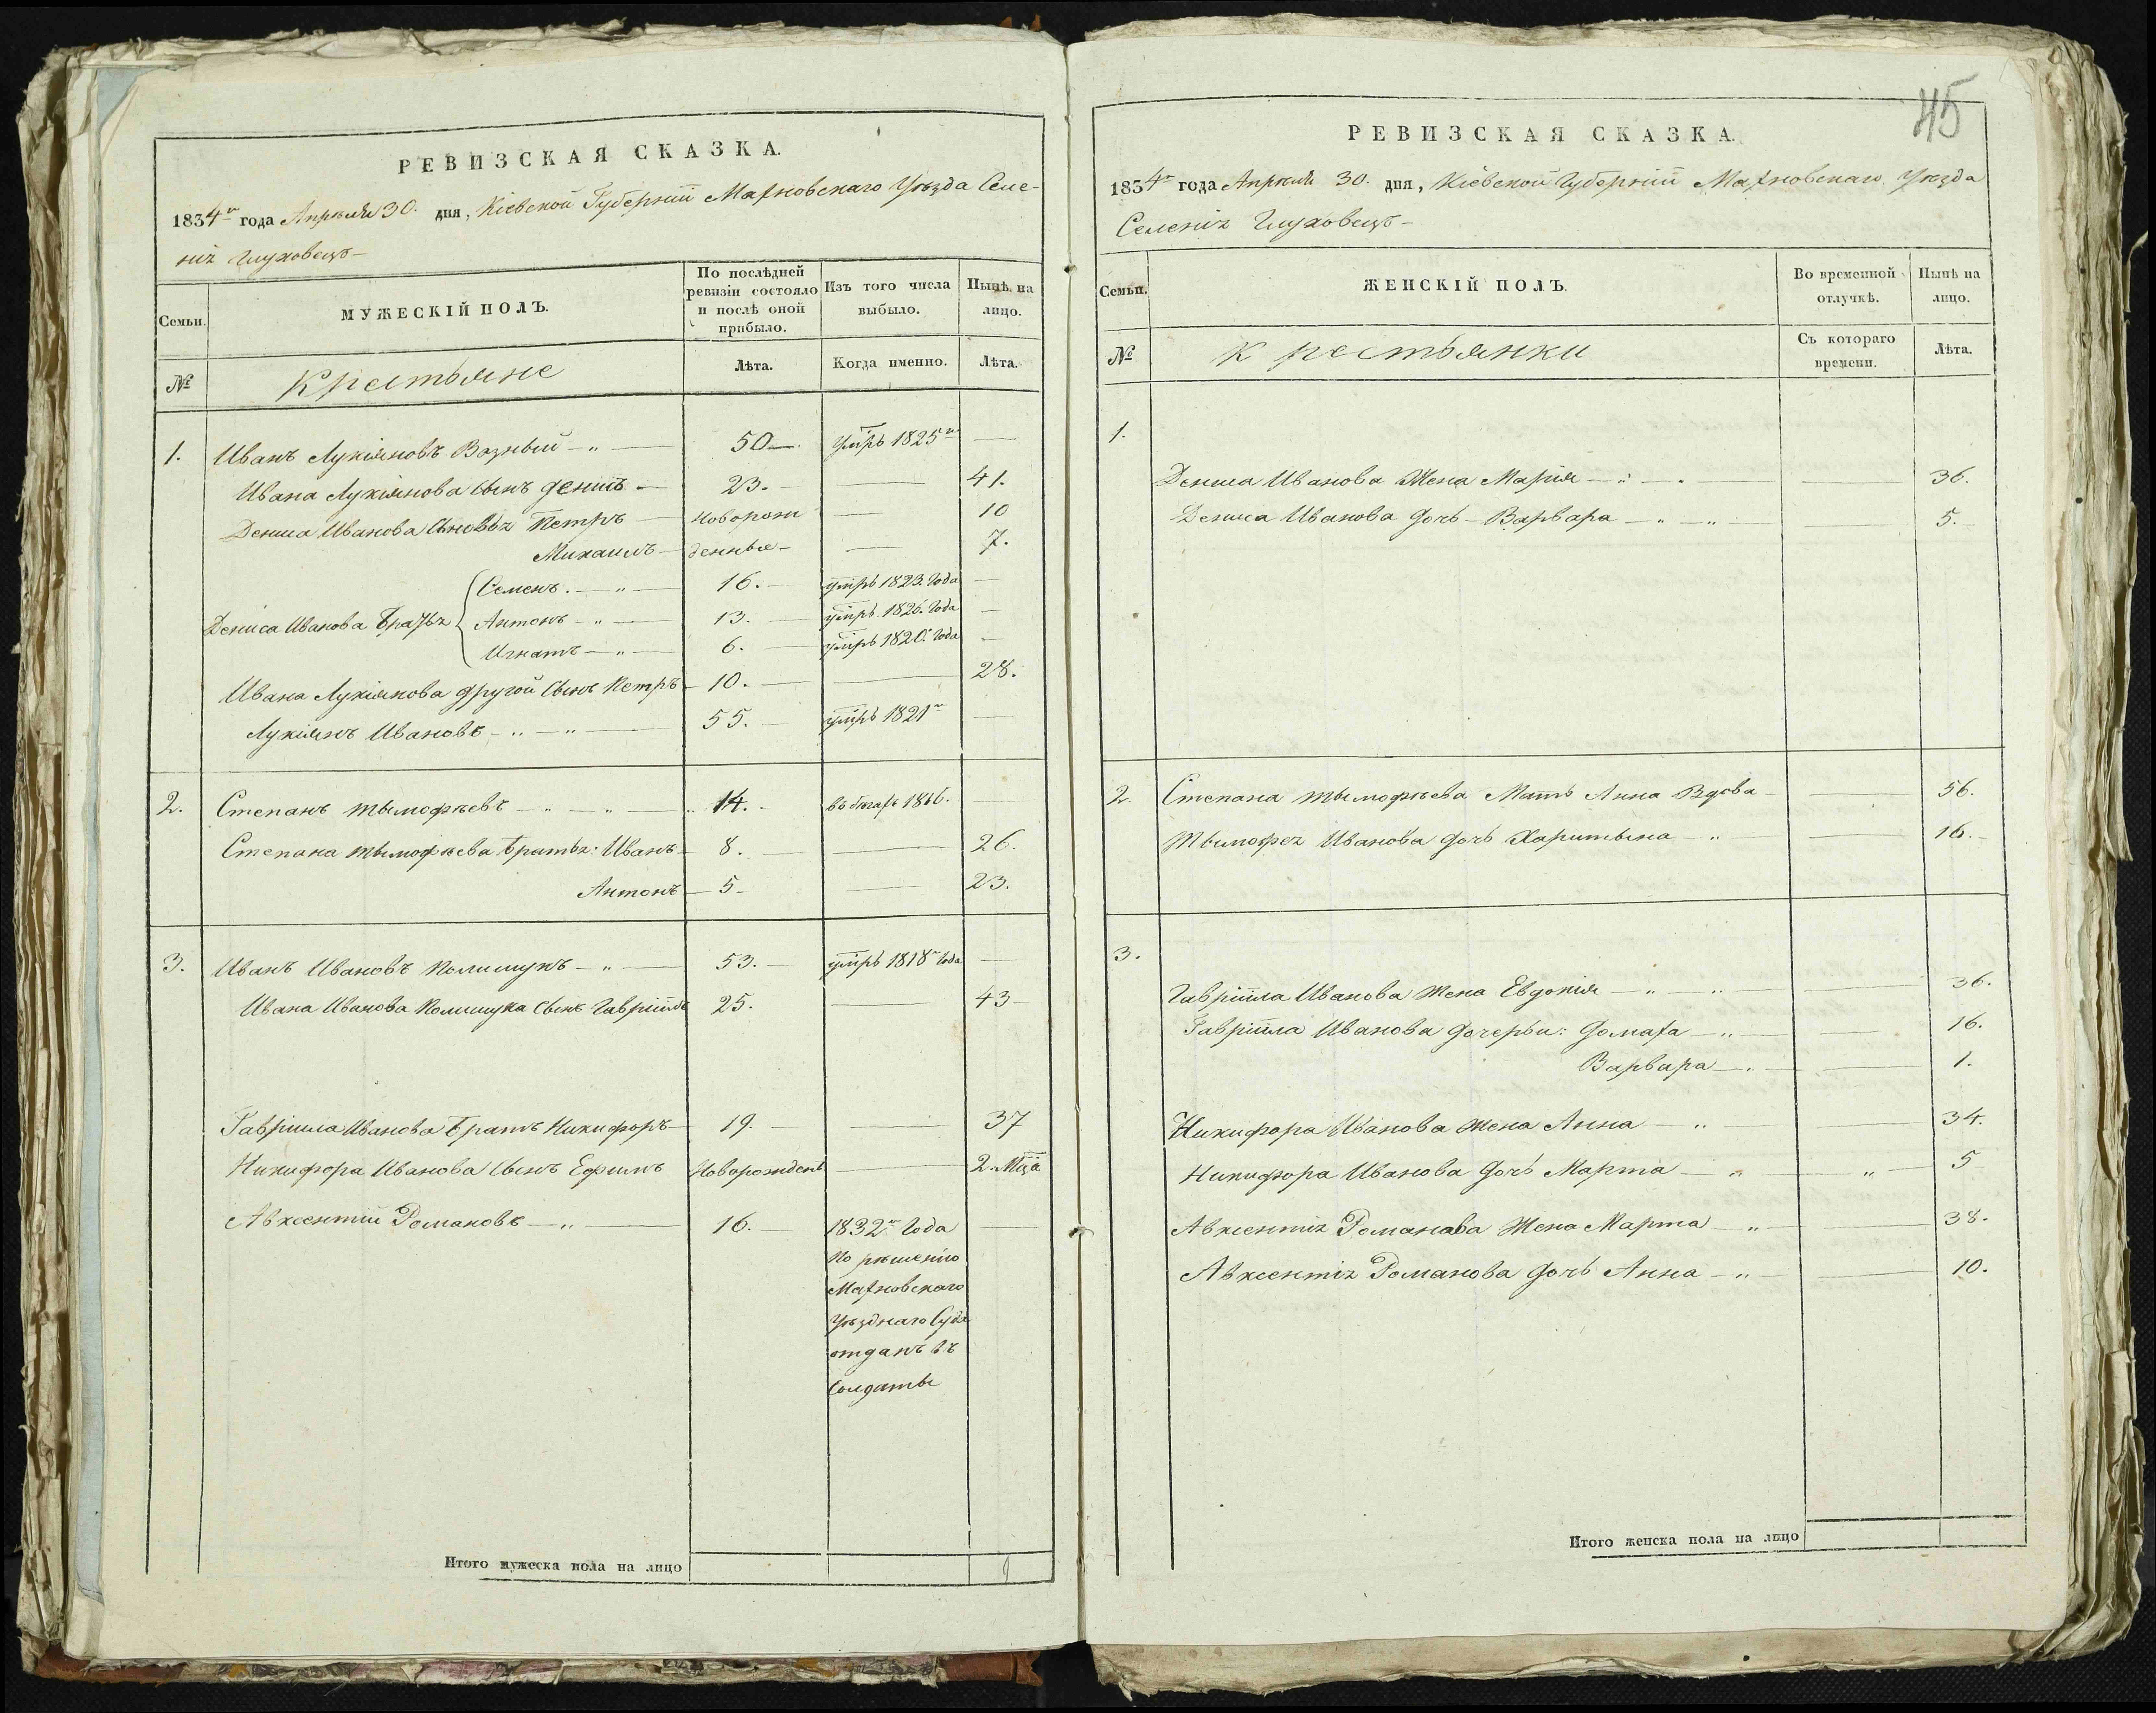 РЕВИЗСКАЯ СКАЗКА.
1834го года Апрѣля 30. дня, Кіевской Губерніи Махновскаго Уѣзда Селе-
нія Глуховецъ-
Семьи.
МУЖЕСКІЙ ПОЛЪ.
По послѣдней ревизіи состояло и послѣ оной прибыло.
Изъ того числа выбыло.
Нынѣ на лицо.
№
Крестьяне
Лѣта.
Когда именно.
Лѣта.
1. Иванъ Лукіяновъ Возный 50 умръ 1825го
Ивана Лукіянова Сынъ Денисъ 23. 41.
Дениса Иванова Сыновья Петръ Новорож 10
Михаилъ денные 7.
Семенъ. 16. умръ 1823. Года
Дениса Иванова Братья Антонъ 13. умръ 1826. Года
Игнатъ 6. умръ 1820. Года
Ивана Лукіянова другой Сынъ Петръ 10. 28.
Лукіянъ Ивановъ 55. умръ 1821го
2. Степанъ Тымофѣевъ 14. въ бѣгахъ 1816.
Степана Тымофѣева Братья: Иванъ 8. 26.
Антонъ 5 23.
3. Иванъ Ивановъ Полищукъ 53. умръ 1818го Года
Ивана Иванова Полищука Сынъ Гавріилъ 25. 43
Гавріила Иванова Братъ Никифоръ 19. 37
Никифора Иванова Сынъ Ефимъ Новорожденъ 2. Мца
Авксентій Романовъ 16. 1832го Года
По рѣшенію
Махновскаго
Уѣзднаго Суда
отданъ въ
Солдаты
Итого мужеска пола на лицо 9
45
РЕВИЗСКАЯ СКАЗКА.
1834го года Апрѣля 30. дня, Кіевской Губерніи Махновскаго Уѣзда
Селенія Глуховецъ-
Семьи.
ЖЕНСКІЙ ПОЛЪ.
Во временной отлучкѣ.
Нынѣ на лицо.
№
Крестьянки
Съ котораго времени.
Лѣта.
1.
Дениса Иванова Жена Марія 36.
Дениса Иванова Дочь Варвара 5.
2. Степана Тымофѣева Мать Анна Вдова 56.
Тымофея Иванова Дочь Харитына 16.
3.
Гавріила Иванова Жена Евдокія 36.
Гавріила Иванова Дочерьи: Домаха 16.
Варвара 1.
Никифора Иванова Жена Анна 34.
Никифора Иванова Дочь Марта 5
Авксентія Романова Жена Марта 38.
Авксентія Романова Дочь Анна 10.
Итого женска пола на лицо